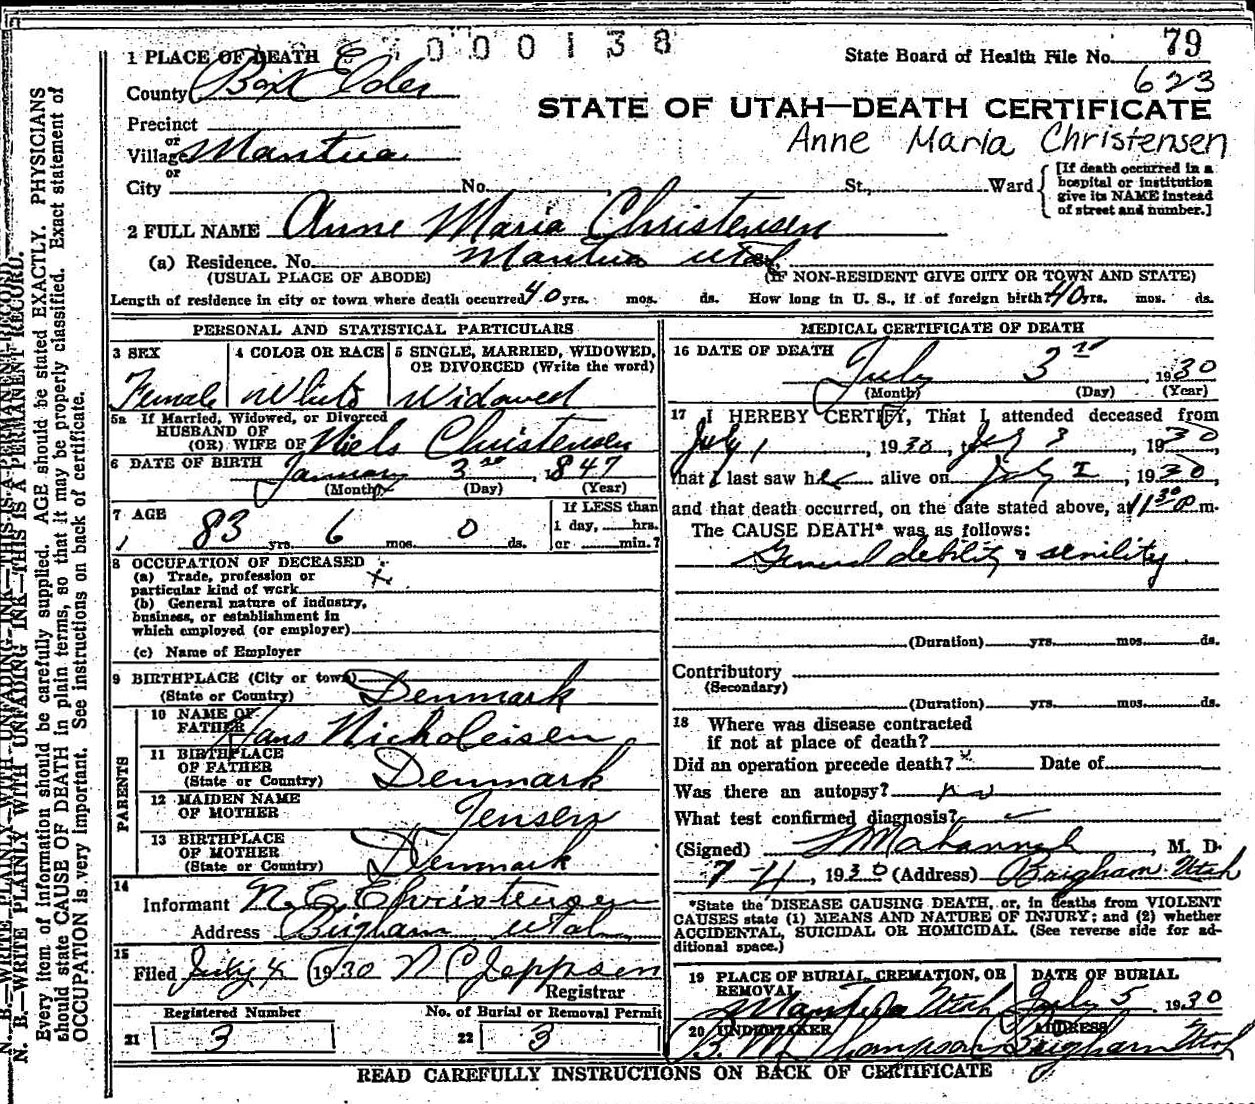 1 PLACE OF DEATH E 1000138
State Board of Health File No. 79
County Box Elder
623
STATE OF UTAH—DEATH CERTIFICATE
Precinct
or
Anne Maria Christensen
Village Mantua
or
City No. St., Ward
[If death occurred in a hospital or institution give its NAME instead of street and number.]
2 FULL NAME Anne Maria Christensen
(a) Residence. No. Mantua Utah
(USUAL PLACE OF ABODE) (IF NON-RESIDENT GIVE CITY OR TOWN AND STATE)
Length of residence in city or town where death occurred 40 yrs. mos. ds. How long in U. S., if of foreign birth? 40 yrs. mos. ds.
PERSONAL AND STATISTICAL PARTICULARS
3 SEX
Female
4 COLOR OR RACE
White
5 SINGLE, MARRIED, WIDOWED,
OR DIVORCED (Write the word)
Widowed
5a If Married, Widowed, or Divorced
HUSBAND OF
(OR) WIFE OF Niels Christensen
6 DATE OF BIRTH January 3rd, 1847
(Month) (Day) (Year)
7 AGE
83 yrs. 6 mos. 0 ds.
If LESS than
1 day, hrs.
or min.?
8 OCCUPATION OF DECEASED
(a) Trade, profession or
particular kind of work x
(b) General nature of industry,
business, or establishment in
which employed (or employer)
(c) Name of Employer
9 BIRTHPLACE (City or town)
(State or Country) Denmark
PARENTS
10 NAME OF
FATHER Hans Nicholeisen
11 BIRTHPLACE
OF FATHER
(State or Country) Denmark
12 MAIDEN NAME
OF MOTHER Jensen
13 BIRTHPLACE
OF MOTHER
(State or Country) Denmark
14
Informant N. C. Christensen
Address Brigham Utah
15
Filed July 4 1930 N C Jeppsen
Registrar
Registered Number No. of Burial or Removal Permit
21 3 22 3
MEDICAL CERTIFICATE OF DEATH
16 DATE OF DEATH
July 3rd, 1930
(Month) (Day) (Year)
17 I HEREBY CERTIFY, That I attended deceased from
July 1, 1930, to July 3 1930
that I last saw her alive on July 2, 1930,
and that death occurred, on the date stated above, at 11:30 P m.
The CAUSE DEATH* was as follows:
General debility & senility
(Duration) yrs. mos. ds.
Contributory
(Secondary)
(Duration) yrs. mos. ds.
18 Where was disease contracted
if not at place of death?
Did an operation precede death? x Date of
Was there an autopsy? no
What test confirmed diagnosis?
(Signed) , M. D.
7-4, 1930 (Address) Brigham Utah
*State the DISEASE CAUSING DEATH, or, in deaths from VIOLENT
CAUSES state (1) MEANS AND NATURE OF INJURY; and (2) whether
ACCIDENTAL, SUICIDAL OR HOMICIDAL. (See reverse side for ad-
ditional space.)
19 PLACE OF BURIAL, CREMATION, OR
REMOVAL
Mantua Utah
DATE OF BURIAL
July 5 1930
20 UNDERTAKER
B. M. Thompson
ADDRESS
Brigham Utah
READ CAREFULLY INSTRUCTIONS ON BACK OF CERTIFICATE
N. B.—WRITE PLAINLY WITH UNFADING INK—THIS IS A PERMANENT RECORD.
N. B.—WRITE PLAINLY WITH UNFADING INK—THIS IS A PERMANENT RECORD.
Every item of information should be carefully supplied. AGE should be stated EXACTLY. PHYSICIANS
should state CAUSE OF DEATH in plain terms, so that it may be properly classified. Exact statement of
OCCUPATION is very important. See instructions on back of certificate.